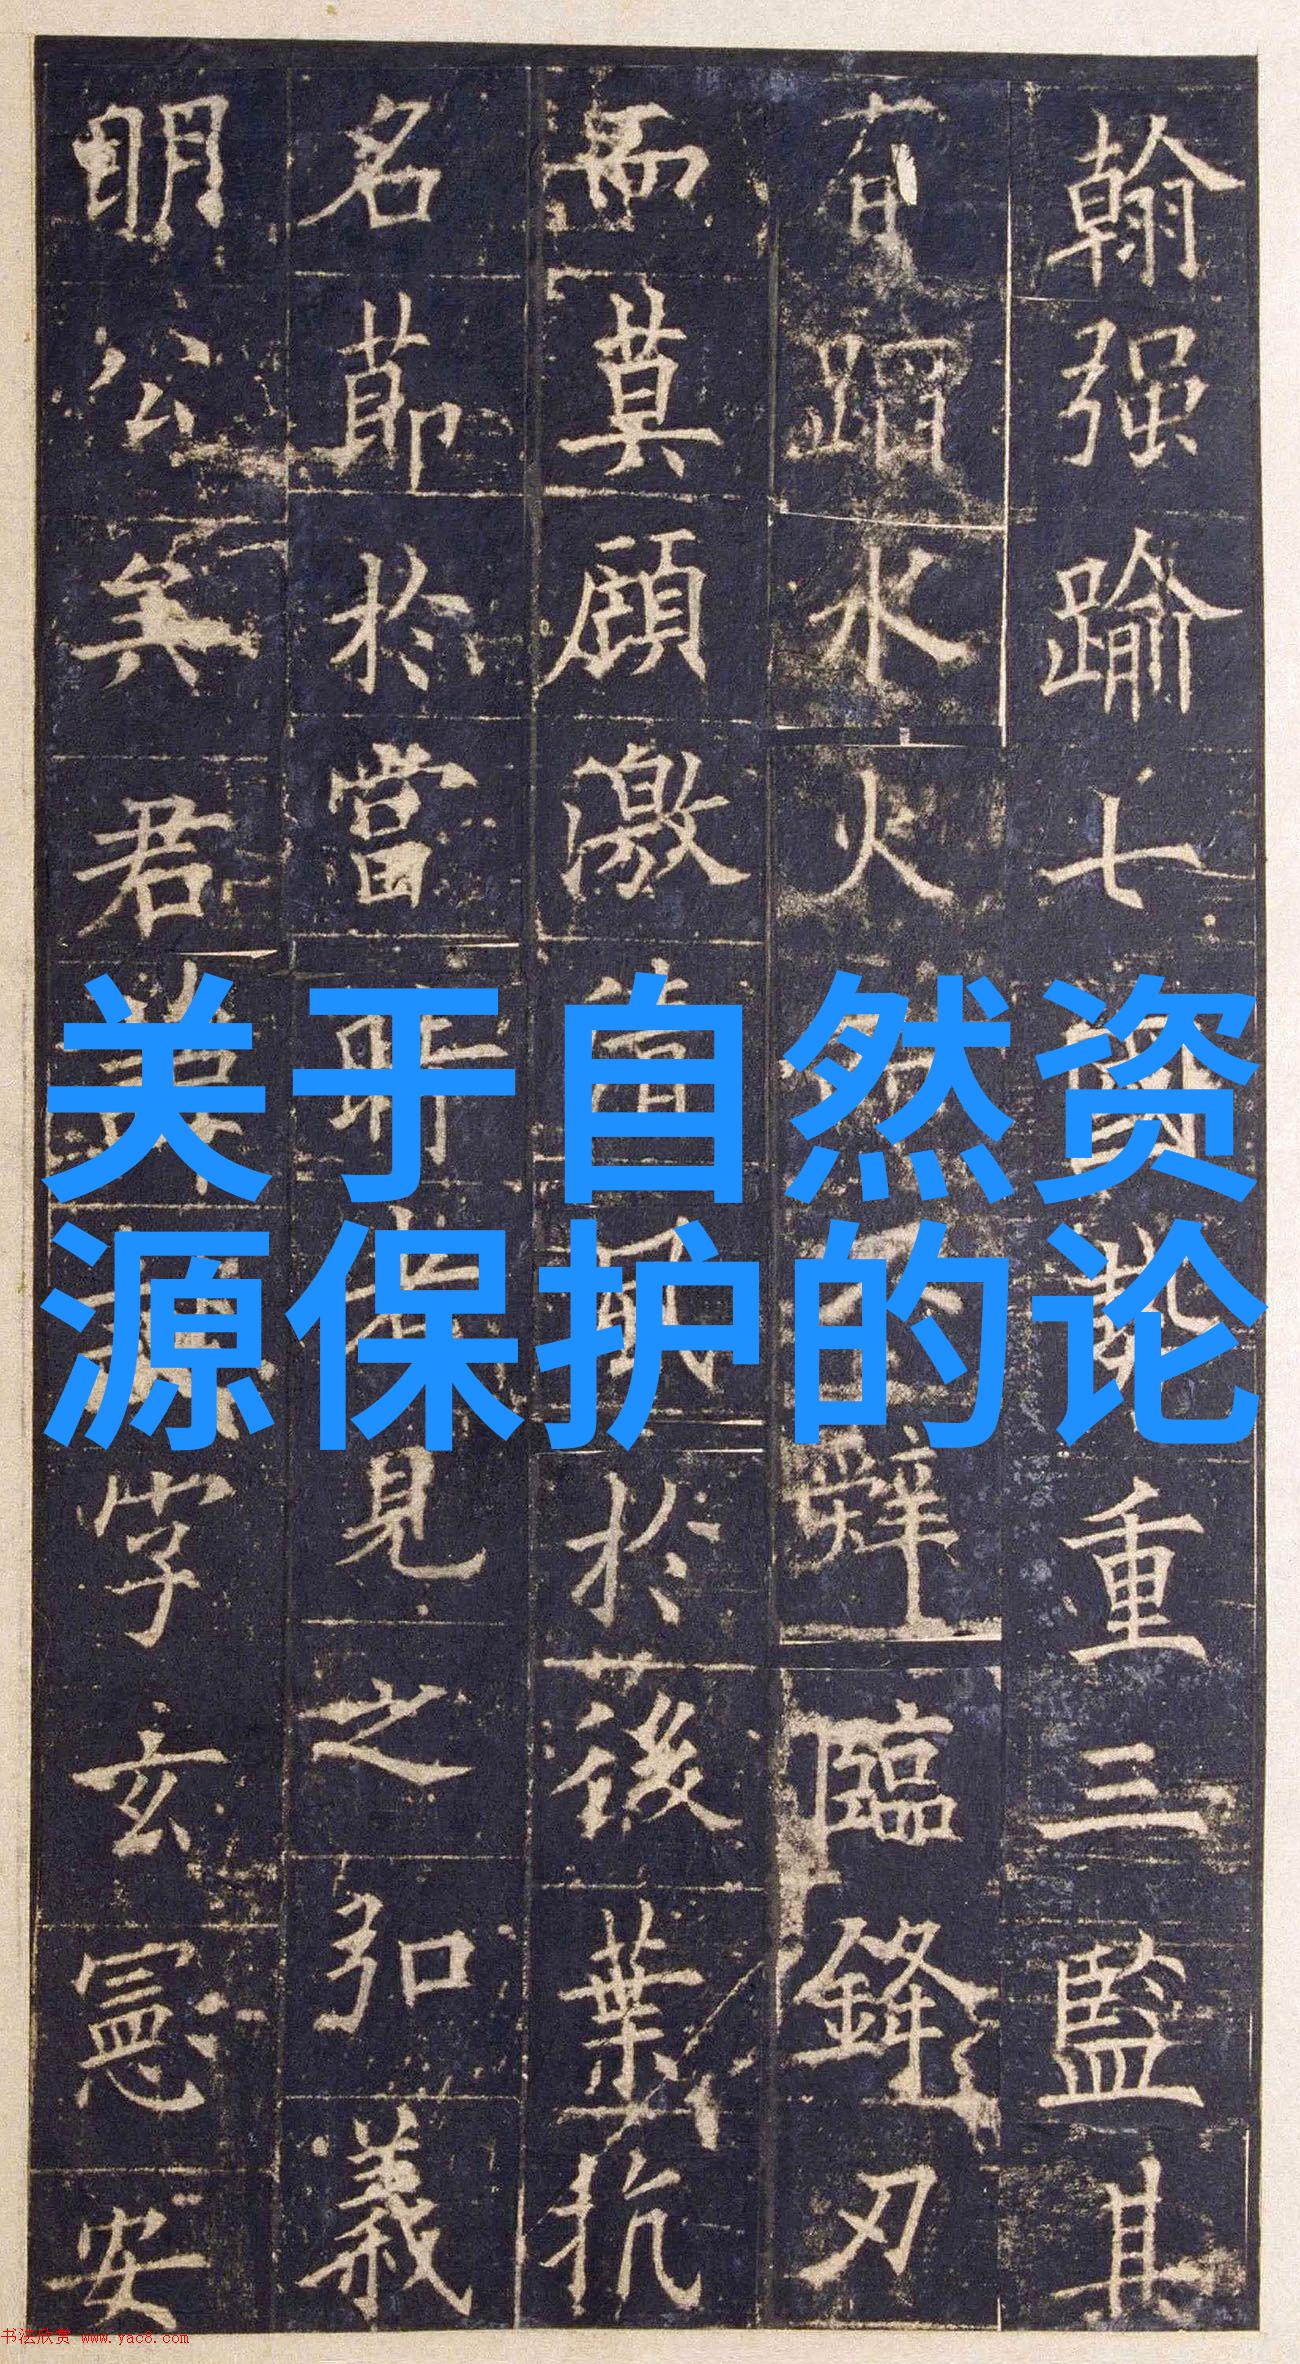 翰强踰七國勢重三監其
有蹈水火不辭臨鋒刃
而莫顧激清風於後葉抗
名節於當時者見之弘義
明公矣君諱字玄憲安
关于自然资
源保护的论
书法欣赏 www.yac8.com